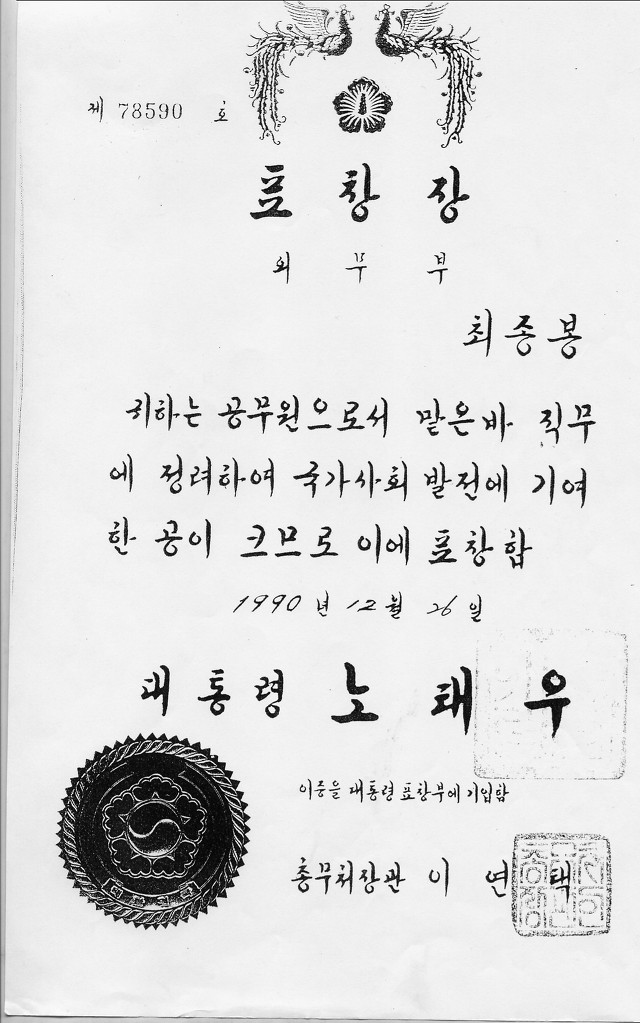 제 78590 호
표창장
외무부
최종봉
귀하는 공무원으로서 맡은바 직무
에 정려하여 국가사회 발전에 기여
한 공이 크므로 이에 표창함
1990년 12월 26일
대통령 노태우
이증을 대통령 표창부에 기입함
총무처장관 이연택